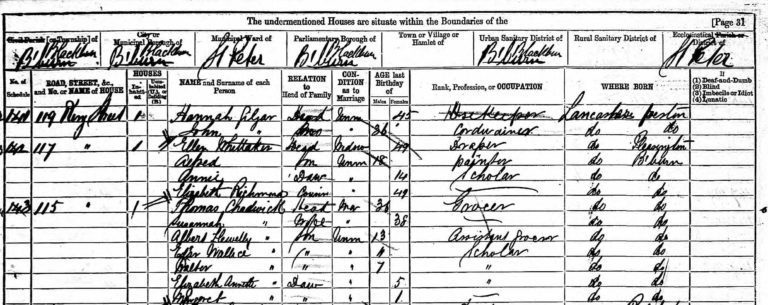 The undermentioned Houses are situate within the Boundaries of the [Page 31
Civil Parish [or Township] of City or Municipal Borough of Municipal Ward of Parliamentary Borough of Town or Village or Hamlet of Urban Sanitary District of Rural Sanitary District of Ecclesiastical Parish or District of
Blackburn St Peter Blackburn Blackburn St Peter
No. of Schedule ROAD, STREET, &c., and No. or NAME of HOUSE HOUSES Inhabited Uninhabited (U.), or Building (B.) NAME and Surname of each Person RELATION to Head of Family CONDITION as to Marriage AGE last Birthday of Males Females Rank, Profession, or OCCUPATION WHERE BORN If (1) Deaf-and-Dumb (2) Blind (3) Imbecile or Idiot (4) Lunatic
119 Street 1 Hannah Head Unm 45 Lancashire Preston
John " 36 Cordwainer do do
142 117 " 1 Ellen Whittaker Head Widow 49 Draper do Pleasington
Alfred Son Unm 18 Painter do B'burn
Annie Daur 14 Scholar do do
Elizabeth Richmond Cousin " 49 do do
143 115 " 1 Thomas Chadwick Head Mar 36 Grocer do do
Susannah " Wife " 38 do do
Albert Llewelly " Son Unm 13 Assistant Grocer do do
Wallace " " " 11 Scholar do do
Walter " " " 7 " do do
Elizabeth Annette " Daur 5 " do do
Margaret " " " 1 do do